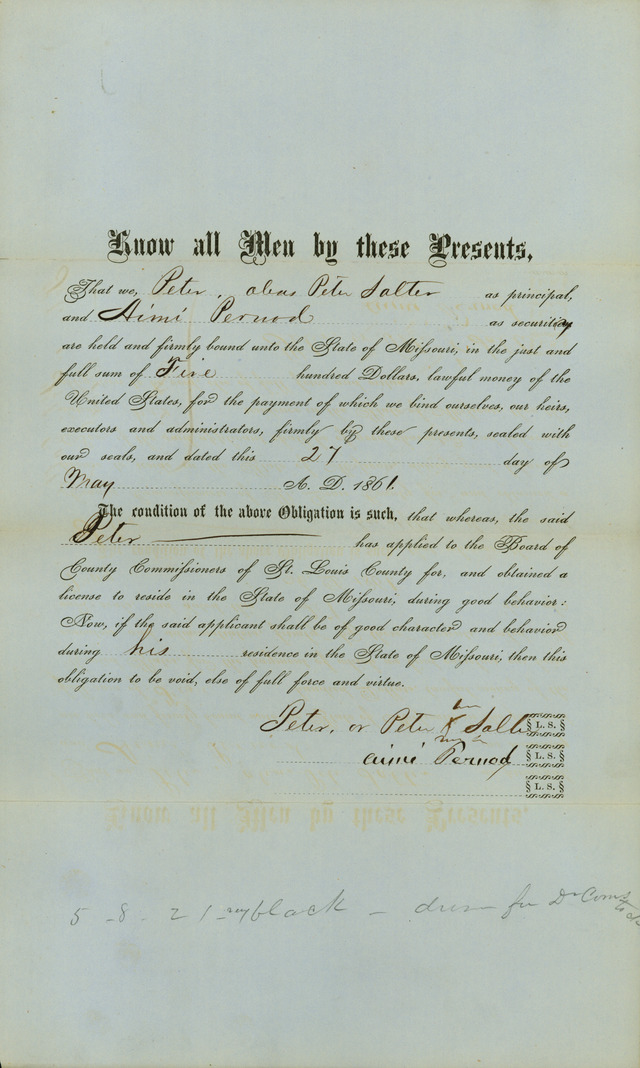 Know all Men by these Presents,
That we, Peter, alias Peter Salter as principal,
and Aimi Pernod as security
are held and firmly bound unto the State of Missouri, in the just and
full sum of Five hundred Dollars, lawful money of the
United States, for the payment of which we bind ourselves, our heirs,
executors and administrators, firmly by these presents, sealed with
our seals, and dated this 27 day of
May A. D. 1861.
The condition of the above Obligation is such, that whereas, the said
Peter has applied to the Board of
County Commissioners of St. Louis County for, and obtained a
license to reside in the State of Missouri, during good behavior:
Now, if the said applicant shall be of good character and behavior
during his residence in the State of Missouri, then this
obligation to be void, else of full force and virtue.
Peter, or Peter X Salter L. S.
aimi Pernod L. S.
L. S.
5-8-21-black -